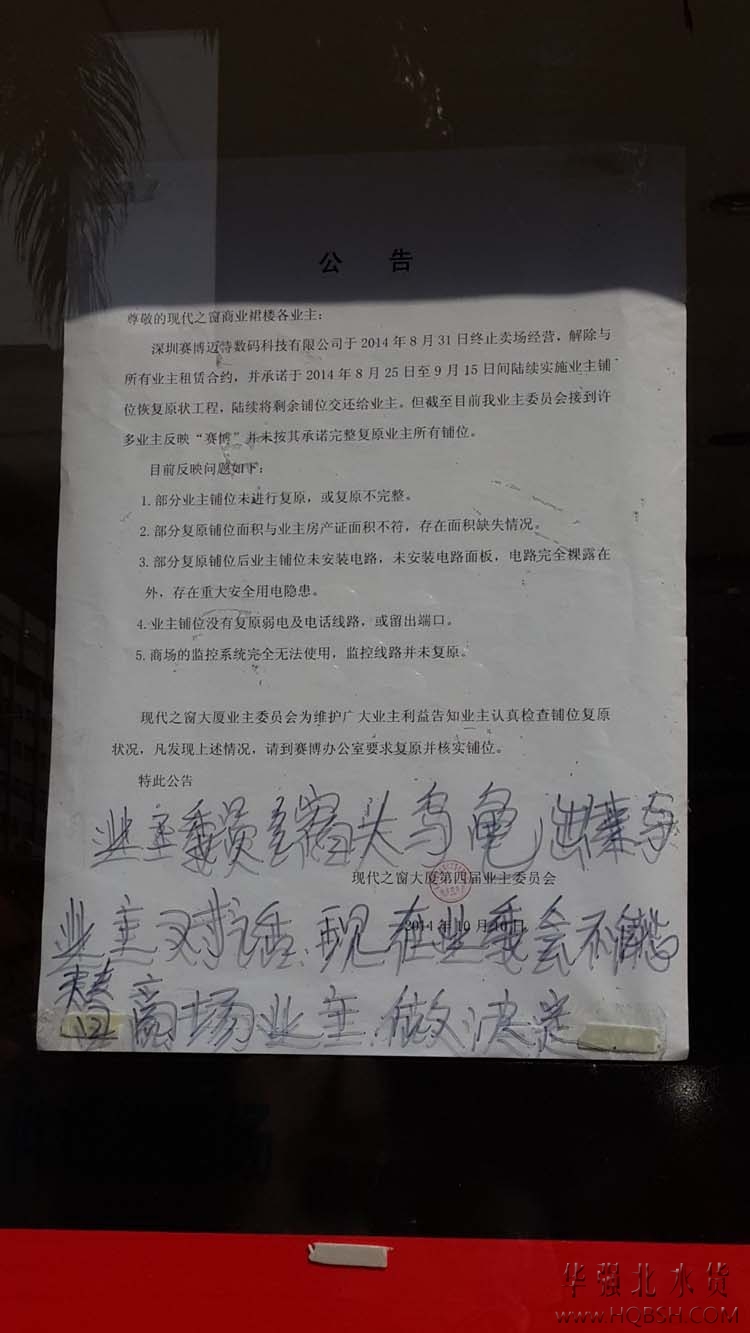 公 告
尊敬的现代之窗商业裙楼各业主：
深圳赛博迈特数码科技有限公司于2014年8月31日终止卖场经营，解除与
所有业主租赁合约，并承诺于2014年8月25日至9月15日间陆续实施业主铺
位恢复原状工程，陆续将剩余铺位交还给业主。但截至目前我业主委员会接到许
多业主反映“赛博”并未按其承诺完整复原业主所有铺位。
目前反映问题如下：
1.部分业主铺位未进行复原，或复原不完整。
2.部分复原铺位面积与业主房产证面积不符，存在面积缺失情况。
3.部分复原铺位后业主铺位未安装电路，未安装电路面板，电路完全裸露在
外，存在重大安全用电隐患。
4.业主铺位没有复原弱电及电话线路，或留出端口。
5.商场的监控系统完全无法使用，监控线路并未复原。
现代之窗大厦业主委员会为维护广大业主利益告知业主认真检查铺位复原
状况，凡发现上述情况，请到赛博办公室要求复原并核实铺位。
特此公告
业主委员会缩头乌龟出来与
现代之窗大厦第四届业主委员会
业主对话.现在业委会不能
2014年10月10日
替商场业主.做决定
华强北水货
www.HQBSH.COM